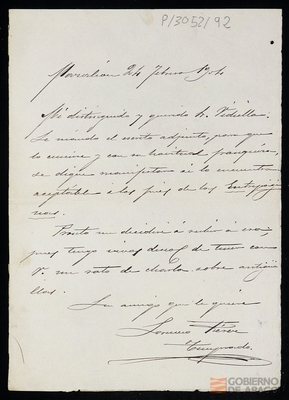 P/3052/92
24 Febrero 1904
Mi distinguido y querido Sr. Vidiella.
Le mando el escrito adjunto, para que
lo examine y con su habitual franqueza,
se digne manifestar si lo encuentra
aceptable á los fines de los
Pronto me decidiré á subir á esa
pues tengo vivos deseos de tener con
V. un rato de charla sobre
Su amigo que le quiere
Lorenzo Pérez
Temprado
GOBIERNO
DE ARAGON